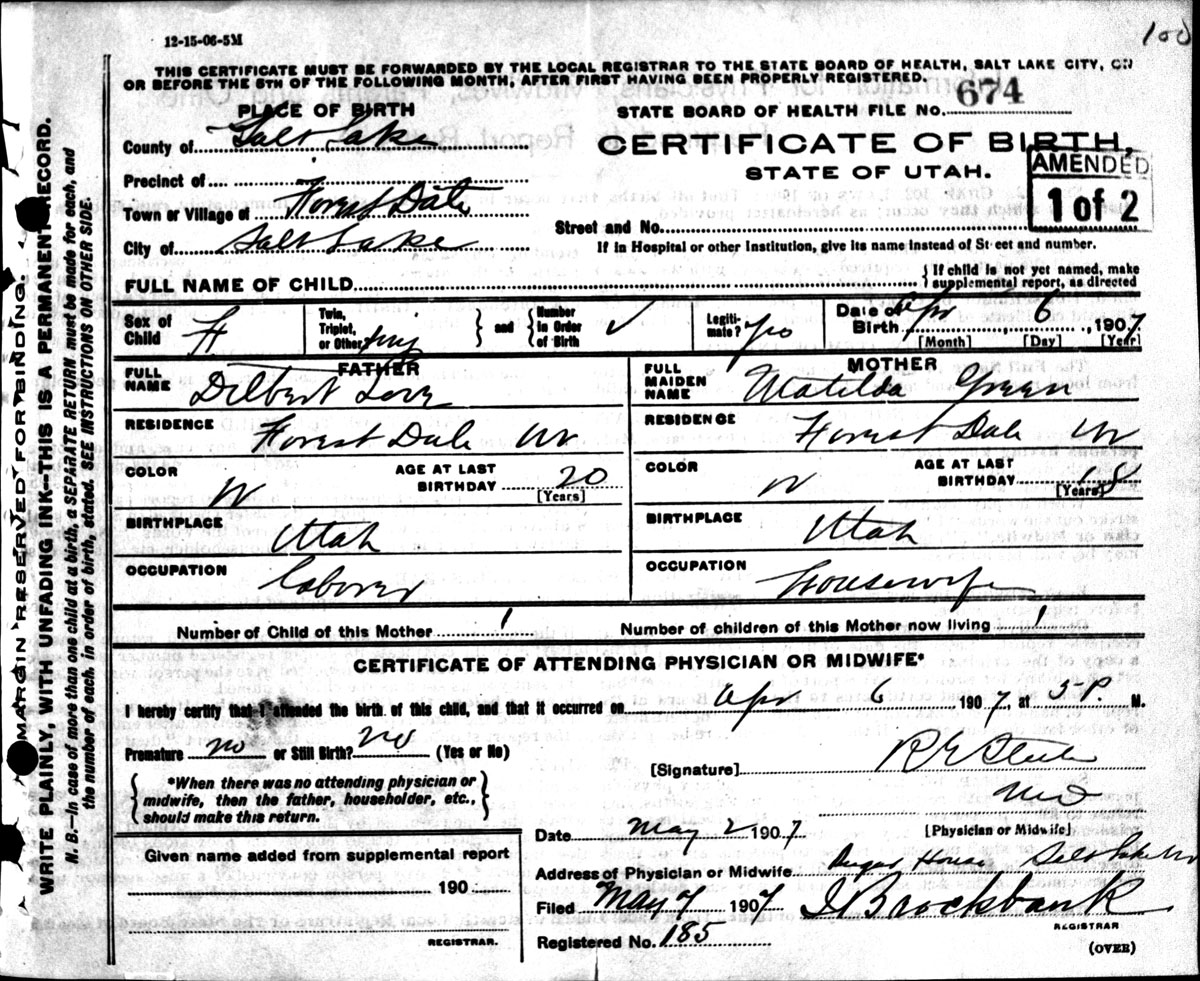 100
12-15-06-5M
THIS CERTIFICATE MUST BE FORWARDED BY THE LOCAL REGISTRAR TO THE STATE BOARD OF HEALTH, SALT LAKE CITY, ON
OR BEFORE THE 5TH OF THE FOLLOWING MONTH, AFTER FIRST HAVING BEEN PROPERLY REGISTERED.
PLACE OF BIRTH
STATE BOARD OF HEALTH FILE NO. 674
County of Salt Lake
CERTIFICATE OF BIRTH,
STATE OF UTAH.
AMENDED
1 of 2
Precinct of
Town or Village of Forest Dale
Street and No.
City of Salt Lake
If in Hospital or other Institution, give its name instead of Street and number.
FULL NAME OF CHILD
{ If child is not yet named, make
supplemental report, as directed
Sex of Child F
Twin, Triplet, or Other } and { Number in Order of Birth ✓
Legiti-mate? yes
Date of Birth Apr 6, 1907
[Month] [Day] [Year]
FATHER
FULL NAME Dilbert Love
RESIDENCE Forest Dale Ut
COLOR W
AGE AT LAST BIRTHDAY 20
[Years]
BIRTHPLACE Utah
OCCUPATION Laborer
MOTHER
FULL MAIDEN NAME Matilda Green
RESIDENCE Forest Dale Ut
COLOR W
AGE AT LAST BIRTHDAY 18
[Years]
BIRTHPLACE Utah
OCCUPATION Housewife
Number of Child of this Mother 1
Number of children of this Mother now living 1
CERTIFICATE OF ATTENDING PHYSICIAN OR MIDWIFE*
I hereby certify that I attended the birth of this child, and that it occurred on Apr 6 1907, at 3 P. M.
Premature no or Still Birth? no (Yes or No)
[Signature]
MD
{ *When there was no attending physician or
midwife, then the father, householder, etc.,
should make this return. }
Date May 2 1907
[Physician or Midwife]
Given name added from supplemental report
190
REGISTRAR.
Address of Physician or Midwife Sugar House Salt Lake
Filed May 7 1907
J Brockbank
REGISTRAR
Registered No. 185
(OVER)
MARGIN RESERVED FOR BINDING.
WRITE PLAINLY, WITH UNFADING INK--THIS IS A PERMANENT RECORD.
N. B.—In case of more than one child at a birth, a SEPARATE RETURN must be made for each, and
the number of each, in order of birth, stated. SEE INSTRUCTIONS ON OTHER SIDE.